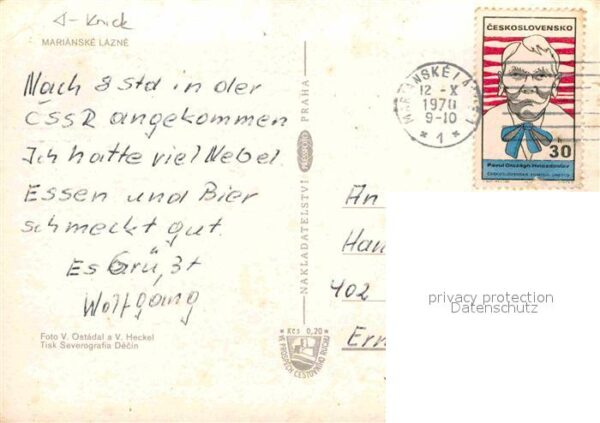 A-Knick
MARIÁNSKÉ LÁZNĚ
Nach 8 Std in der
ČSSR angekommen
Ich hatte viel Nebel.
Essen und Bier
schmeckt gut.
Es Grüßt
Wolfgang
Foto V. Ostádal a V. Heckel
Tisk Severografia Děčín
NAKLADATELSTVÍ PRESSFOTO PRAHA
Kčs 0,20
VE PROSPĚCH CESTOVNÍHO RUCHU
MARIÁNSKÉ LÁ
12 -X
1970
9-10
* 1 *
ČESKOSLOVENSKO
30
Pavol Országh Hviezdoslav
An
Han
402
Ern
privacy protection
Datenschutz